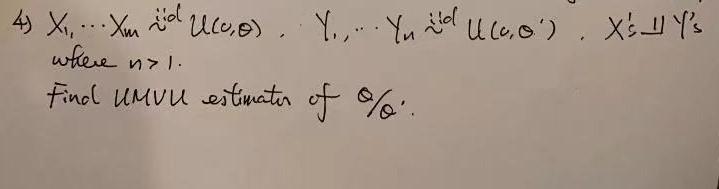 4) X₁, ⋯ Xm iid ~ U(0,θ) . Y₁, ⋯ Yn iid ~ U(0,θ') . X's ⫫ Y's
where n > 1.
Find UMVU estimator of θ/θ'.